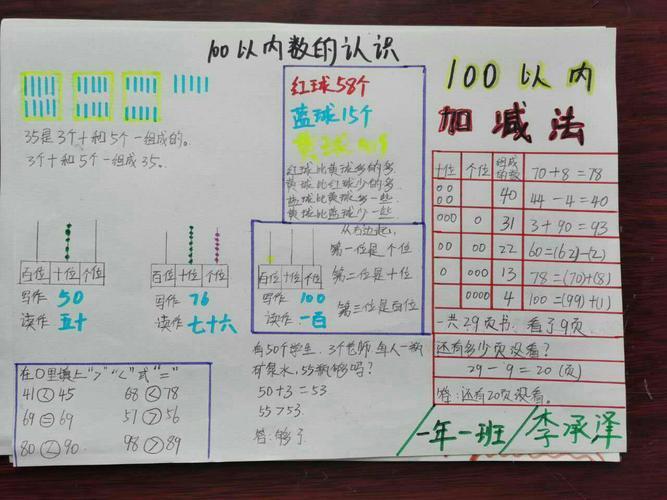 100以内数的认识
35是3个十和5个一组成的。
3个十和5个一组成35。
百位 十位 个位
写作 50
读作 五十
百位 十位 个位
写作 76
读作 七十六
在○里填上“>”“<”或“=”
41<45 68<78
69=69 51>56
80<90 98>89
红球58个
蓝球15个
黄球
红球比黄球多的多
黄球比红球少的多
蓝球比黄球多一些
黄球比蓝球少一些
百位 十位 个位
写作 100
读作 一百
从右边起,
第一位是个位
第二位是十位
第三位是百位
有50个学生,3个老师每人一瓶
矿泉水,55瓶够吗?
50+3=53
55>53
答:够了
100以内
加减法
十位 个位 组成的数 70+8=78
40 44-4=40
31 3+90=93
22 60=(62)-(2)
13 78=(70)+(8)
4 100=(99)+(1)
一共29页书,看了9页
还有多少页没看?
29-9=20(页)
答:还有20页没看。
一年一班/李承泽